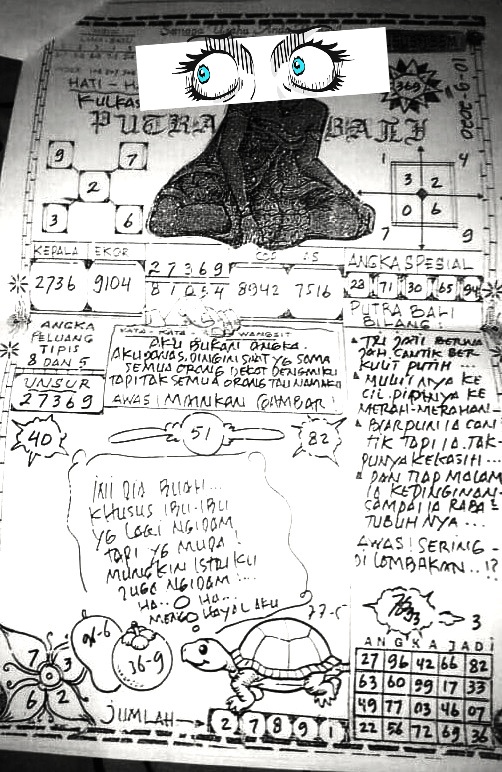 369
10-9-2020
HATI - H
KULKAS
PUTRA BALI
9 7
2
3 6
1 4
3 2
0 6
7 9
KEPALA EKOR
2736 9104
27369
81054
COP AS
8942 7516
ANGKA SPESIAL
23 71 30 65 94
ANGKA
PELUANG
TIPIS
8 DAN 5
UNSUR
27369
KATA - KATA WANGSIT
AKU BUKAN ANGKA.
SEMUA ORANG DEKAT DENGANKU
TAPI TAK SEMUA ORANG TAU NAMAKU
AWAS! MAINKAN GAMBAR!
PUTRA BALI
BILANG:
KULIT PUTIH...
MULUTNYA KE
CIL. PIPINYA KE
MERAH-MERAHAN..
BIARPUN IA CAN
TIK TAPI IA TAK-
PUNYA KEKASIH...
DAN TIAP MALAM
IA KEDINGINAN
SAMPAI IA RABA²
TUBUHNYA...
AWAS! SERING -
DI LOMBAKAN..!?
40
51
82
INI DIA BUAH...
KHUSUS IBU-IBU
YG LAGI NGIDAM
TAPI YG MUDA!
MUNGKIN ISTRIKU
JUGA NGIDAM!...
HA.. O HA...
MENGHAYAL AKU
77-5
3
7 3
6 2
16-9
ANGKA JADI
27 96 42 66 82
63 60 99 17 33
49 77 03 46 07
22 56 72 69 36
JUMLAH → 2 7 8 9 1